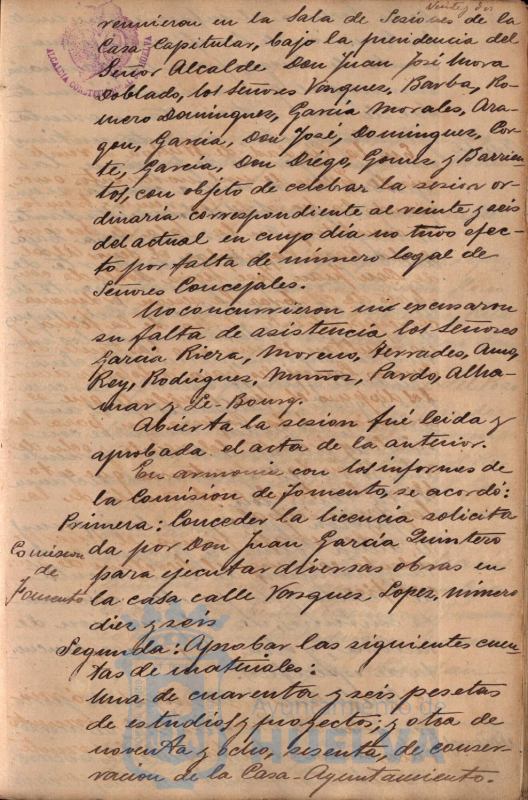 Veinte y dos
reunieron en la Sala de Sesiones de la
Casa Capitular, bajo la presidencia del
Señor Alcalde Don Juan José Mora
Doblado, los Señores Vazquez, Barba, Ro-
mero Dominguez, Garcia Morales, Ara-
gon, Garcia, Don José, Dominguez, Cor-
te, García, Don Diégo, Gomez y Barrien-
tos, con objeto de celebrar la sesion or-
dinaria correspondiente al veinte y seis
del actual en cuyo dia no tuvo efec-
to por falta de número legal de
Señores Concejales.
No concurrieron ni excusaron
su falta de asistencia los Señores
Garcia Riera, Moreno, Terrades, Amo,
Rey, Rodriguez, Muñoz, Pardo, Alha-
mar y Le-Bourg.
Abierta la sesion fué leida y
aprobada el acta de la anterior.
En armonia con los informes de
la Comision de Fomento, se acordó:
Primera: Conceder la licencia solicita
da por Don Juan García Quintero
para ejecutar diversas obras en
la casa calle Vazquez Lopez, número
diez y seis
Comision
de
Fomento
Segunda: Aprobar las siguientes cuen-
tas de materiales:
Una de cuarenta y seis pesetas
de estudios y proyectos; y otra de
noventa y ocho, sesenta, de conser-
vacion de la Casa-Ayuntamiento.
Ayuntamiento de
HUELVA